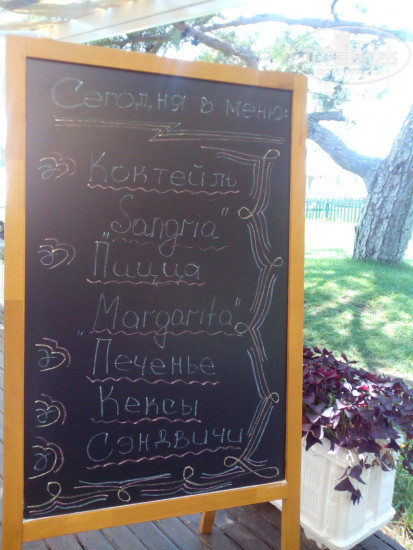 Сегодня в меню:
Коктейль
"Sangria"
Пицца
"Margarita"
Печенье
Кексы
Сэндвичи